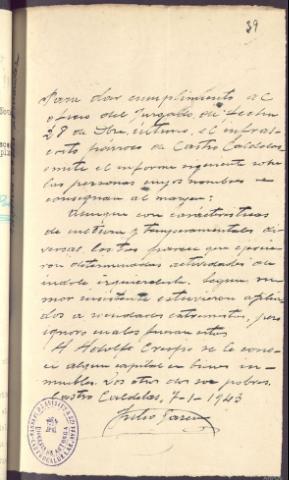 39
Para dar cumplimiento al
oficio del Juzgado, de fecha
28 de Dbre, último, el infras-
crito párroco de Castro Caldelas
emite el informe siguiente sobre
las personas cuyos nombres se
consignan al margen:
Aunque con características
de cultura y temperamentales di-
versas, los tres parece que ejercie-
ron determinadas actividades de
índole izquierdista. Según ru-
mor insistente estuvieron afilia-
dos a sociedades extremistas, pero
ignoro cuales fueran estas
Al Adolfo Crespo se le cono-
ce algun capital en bienes in-
muebles. Los otros dos son pobres.
Castro Caldelas, 7-1-1943